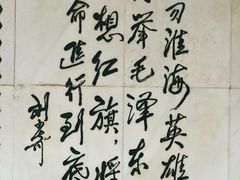 习淮海英雄
举毛泽东
想红旗，将
命进行到底
刘